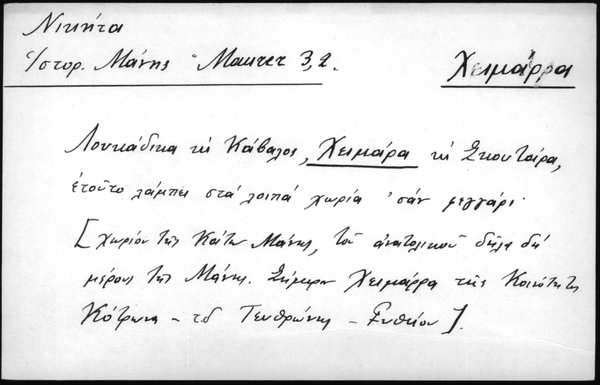 Νικήτα
Ἱστορ. Μάνης "Maurer 3,2.
Χειμάρρα
Λουκάδικα κὴ Κάβαλος, Χειμάρα κὴ Σκουτάρα,
ἐτοῦτο λάμπει στὰ λοιπὰ χωρία 'σὰν φεγγάρι.
[χωρίον τῆς Κάτω Μάνης, τοῦ ἀνατολικοῦ δηλαδὴ
μέρους τῆς Μάνης. Σήμερον Χειμάρρα τῆς Κοινότητος
Κότρωνα - τ.δ Τευθρώνης - Γυθείου].